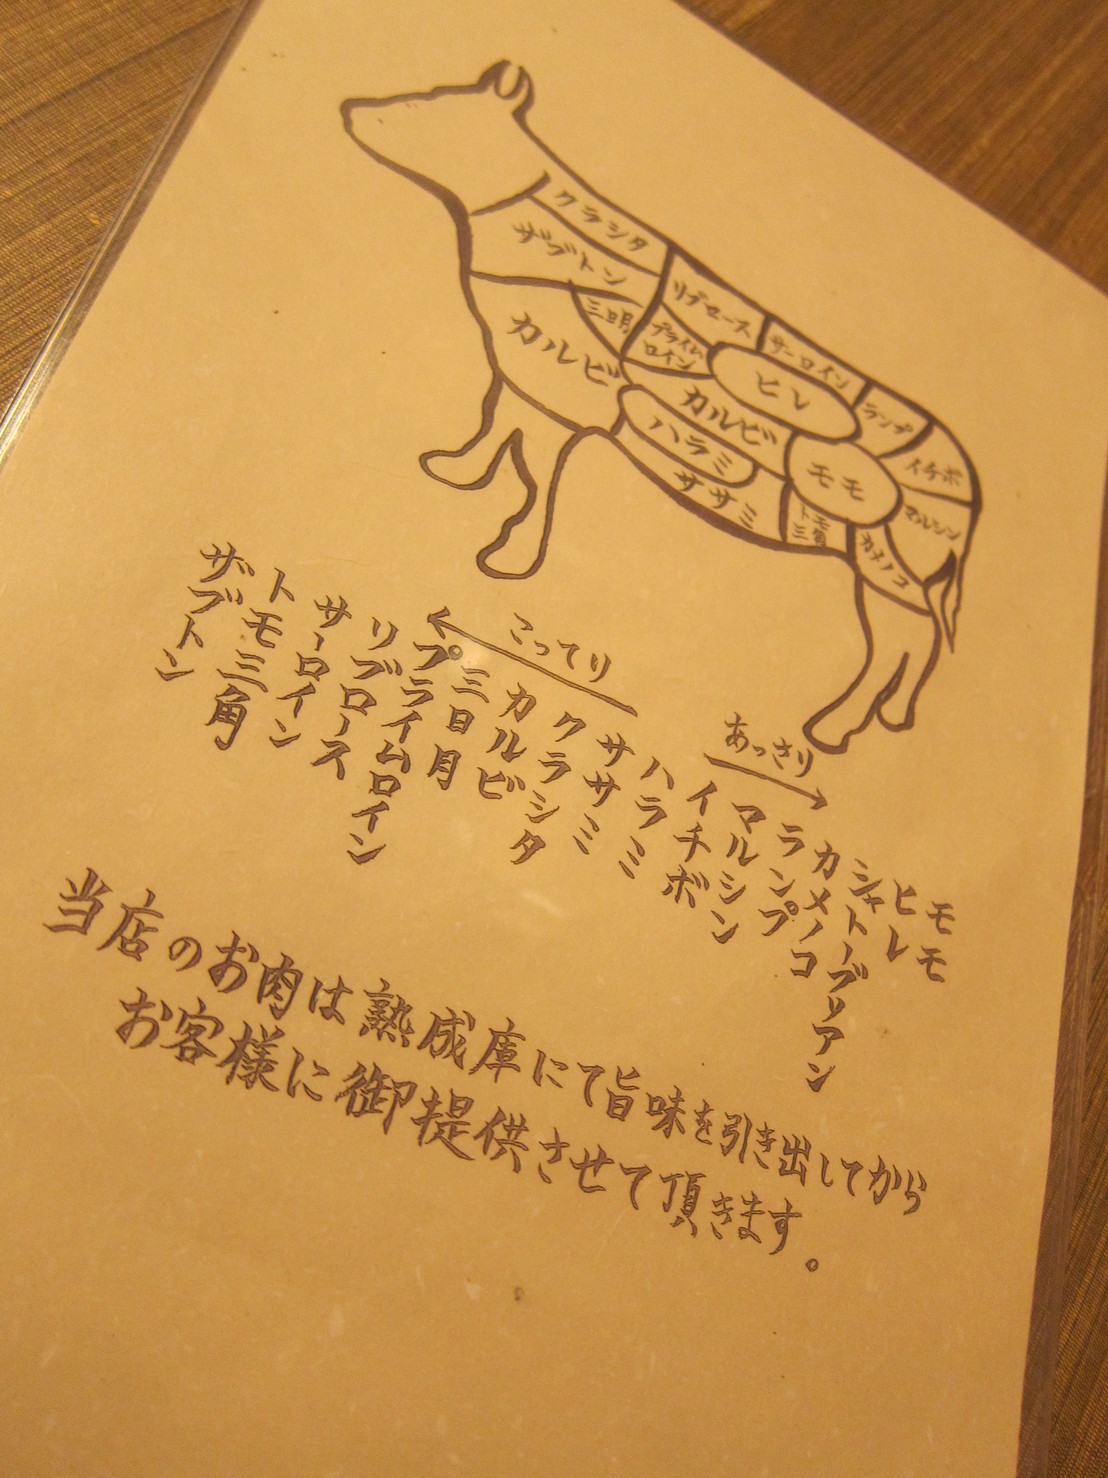 クラシタ
ザブトン
三日月
カルビ
リブロース
プライム
ロイン
サーロイン
ヒレ
カルビ
ハラミ
ササミ
ランプ
イチボ
モモ
マルシン
カメノコ
トモ
三角
こってり
あっさり
モモ
ヒレ
シャトーブリアン
カメノコ
ランプ
マルシン
イチボ
ハラミ
ササミ
クラシタ
カルビ
三日月
プライムロイン
リブロース
サーロイン
トモ三角
ザブトン
当店のお肉は熟成庫にて旨味を引き出してから
お客様に御提供させて頂きます。